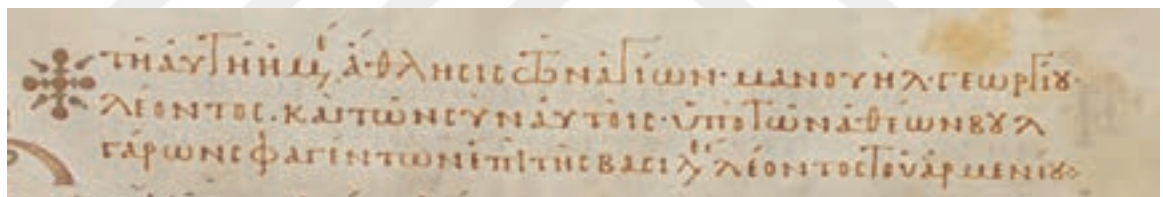 τῆ αὐτῆ ἡμέ ἄθλησις τῶν ἁγίων· μανουὴλ· γεωργίου·
λέοντος· καὶ τῶν σὺν αὐτοῖς· ὑπὸ τῶν ἀθέων βουλ
γάρων σφαγέντων ἐπὶ τῆς βασιλεί λέοντος τοῦ ἀρμενίου: